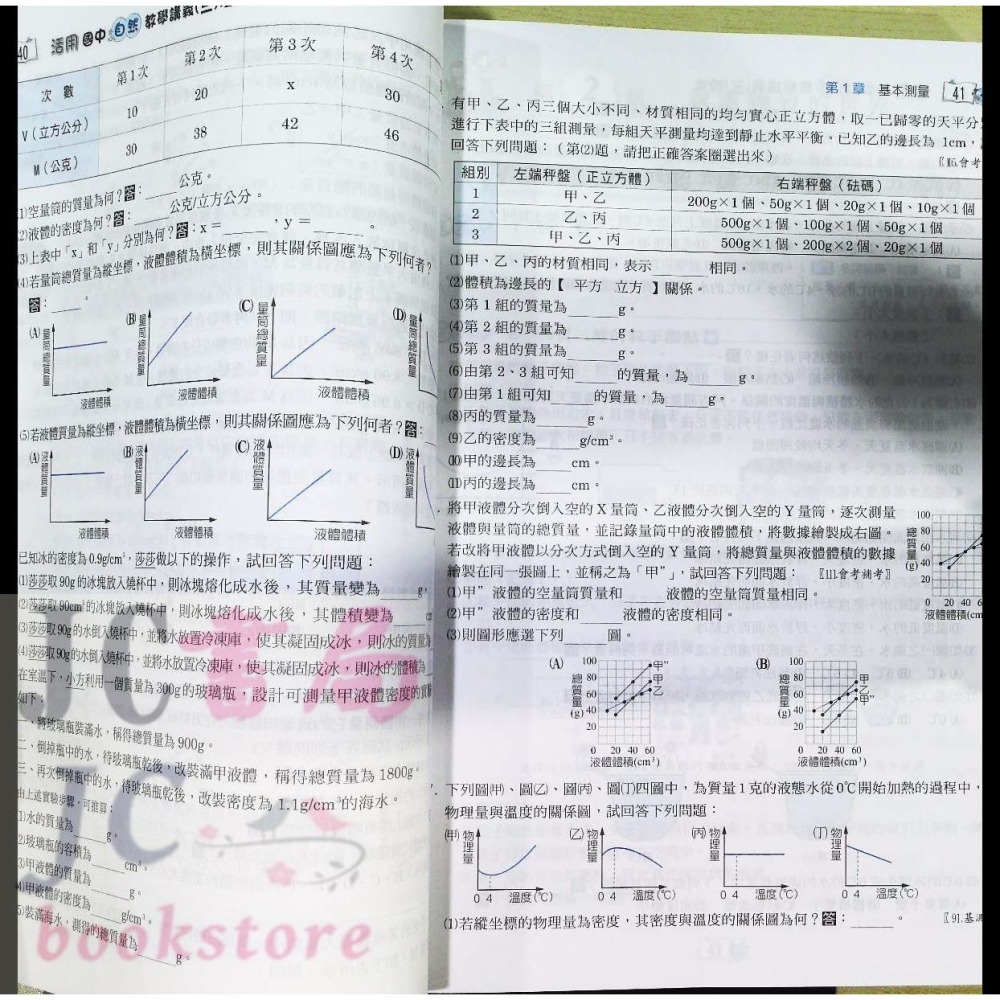 40 活用國中 自然 教學講義
次 數 第1次 第2次 第3次 第4次
V(立方公分) 10 20 x 30
M(公克) 30 38 42 46
(1)空量筒的質量為何?答:______公克。
(2)液體的密度為何?答:______公克/立方公分。
(3)上表中「x」和「y」分別為何?答:x=______,y=______。
(4)若量筒總質量為縱坐標,液體體積為橫坐標,則其關係圖應為下列何者?
答:______。
(A) 量筒總質量 液體體積 (B) 量筒總質量 液體體積 (C) 量筒總質量 液體體積 (D) 量筒總質量
(5)若液體質量為縱坐標,液體體積為橫坐標,則其關係圖應為下列何者?答:
(A) 液體質量 液體體積 (B) 液體質量 液體體積 (C) 液體質量 液體體積 (D) 液體質量
已知冰的密度為0.9g/cm³,莎莎做以下的操作,試回答下列問題:
(1)莎莎取90g的冰塊放入燒杯中,則冰塊熔化成水後,其質量變為______g
(2)莎莎取90cm³的冰塊放入燒杯中,則冰塊熔化成水後,其體積變為______
(3)莎莎取90g的水倒入燒杯中,並將水放置冷凍庫,使其凝固成冰,則冰的質量為
(4)莎莎取90g的水倒入燒杯中,並將水放置冷凍庫,使其凝固成冰,則冰的體積為
在室溫下,小方利用一個質量為300g的玻璃瓶,設計可測量甲液體密度的實驗
如下:
一、將玻璃瓶裝滿水,稱得總質量為900g。
二、倒掉瓶中的水,待玻璃瓶乾後,改裝滿甲液體,稱得總質量為1800g。
三、再次倒掉瓶中的水,待玻璃瓶乾後,改裝密度為1.1g/cm³的海水。
由上述實驗步驟,可推算:
(1)水的質量為______g。
(2)玻璃瓶的容積為______cm³。
(3)甲液體的質量為______g。
(4)甲液體的密度為______g/cm³。
(5)裝滿海水,測得的總質量為______g。
JC 書局
JC
bookstore
第1章 基本測量 41
有甲、乙、丙三個大小不同、材質相同的均勻實心正立方體,取一已歸零的天平分
進行下表中的三組測量,每組天平測量均達到靜止水平平衡。已知乙的邊長為 1cm,
回答下列問題:(第(2)題,請把正確答案圈選出來) 【會考
組別 左端秤盤(正立方體) 右端秤盤(砝碼)
1 甲、乙 200g×1個、50g×1個、20g×1個、10g×1個
2 乙、丙 500g×1個、100g×1個、50g×1個
3 甲、乙、丙 500g×1個、200g×2個、20g×1個
(1)甲、乙、丙的材質相同,表示______相同。
(2)體積為邊長的【 平方 立方 】關係。
(3)第1組的質量為______g。
(4)第2組的質量為______g。
(5)第3組的質量為______g。
(6)由第2、3組可知______的質量,為______g。
(7)由第1組可知______的質量,為______g。
(8)丙的質量為______g。
(9)乙的密度為______g/cm³。
(10)甲的邊長為______cm。
(11)丙的邊長為______cm。
將甲液體分次倒入空的X量筒、乙液體分次倒入空的Y量筒,逐次測量
液體與量筒的總質量,並記錄量筒中的液體體積,將數據繪製成右圖。
若改將甲液體以分次方式倒入空的Y量筒,將總質量與液體體積的數據
繪製在同一張圖上,並稱之為「甲"」,試回答下列問題: 【111.會考補考】
總質量(g) 100 80 60 40 20 0 20 40 6 液體體積(cm
(1)甲"液體的空量筒質量和______液體的空量筒質量相同。
(2)甲"液體的密度和______液體的密度相同。
(3)則圖形應選下列______圖。
(A) 總質量(g) 100 80 60 40 20 0 20 40 60 液體體積(cm³) 甲" 甲 乙
(B) 總質量(g) 100 80 60 40 20 0 20 40 60 液體體積(cm³) 甲 乙 甲"
下列圖(甲)、圖(乙)、圖(丙)、圖(丁)四圖中,為質量1克的液態水從0℃開始加熱的過程中,
物理量與溫度的關係圖,試回答下列問題:
(甲) 物理量 0 4 溫度(℃) (乙) 物理量 0 4 溫度(℃) (丙) 物理量 0 4 溫度(℃) (丁) 物理量 0 4 溫度(℃)
(1)若縱坐標的物理量為密度,其密度與溫度的關係圖為何?答:______。 【91.基測